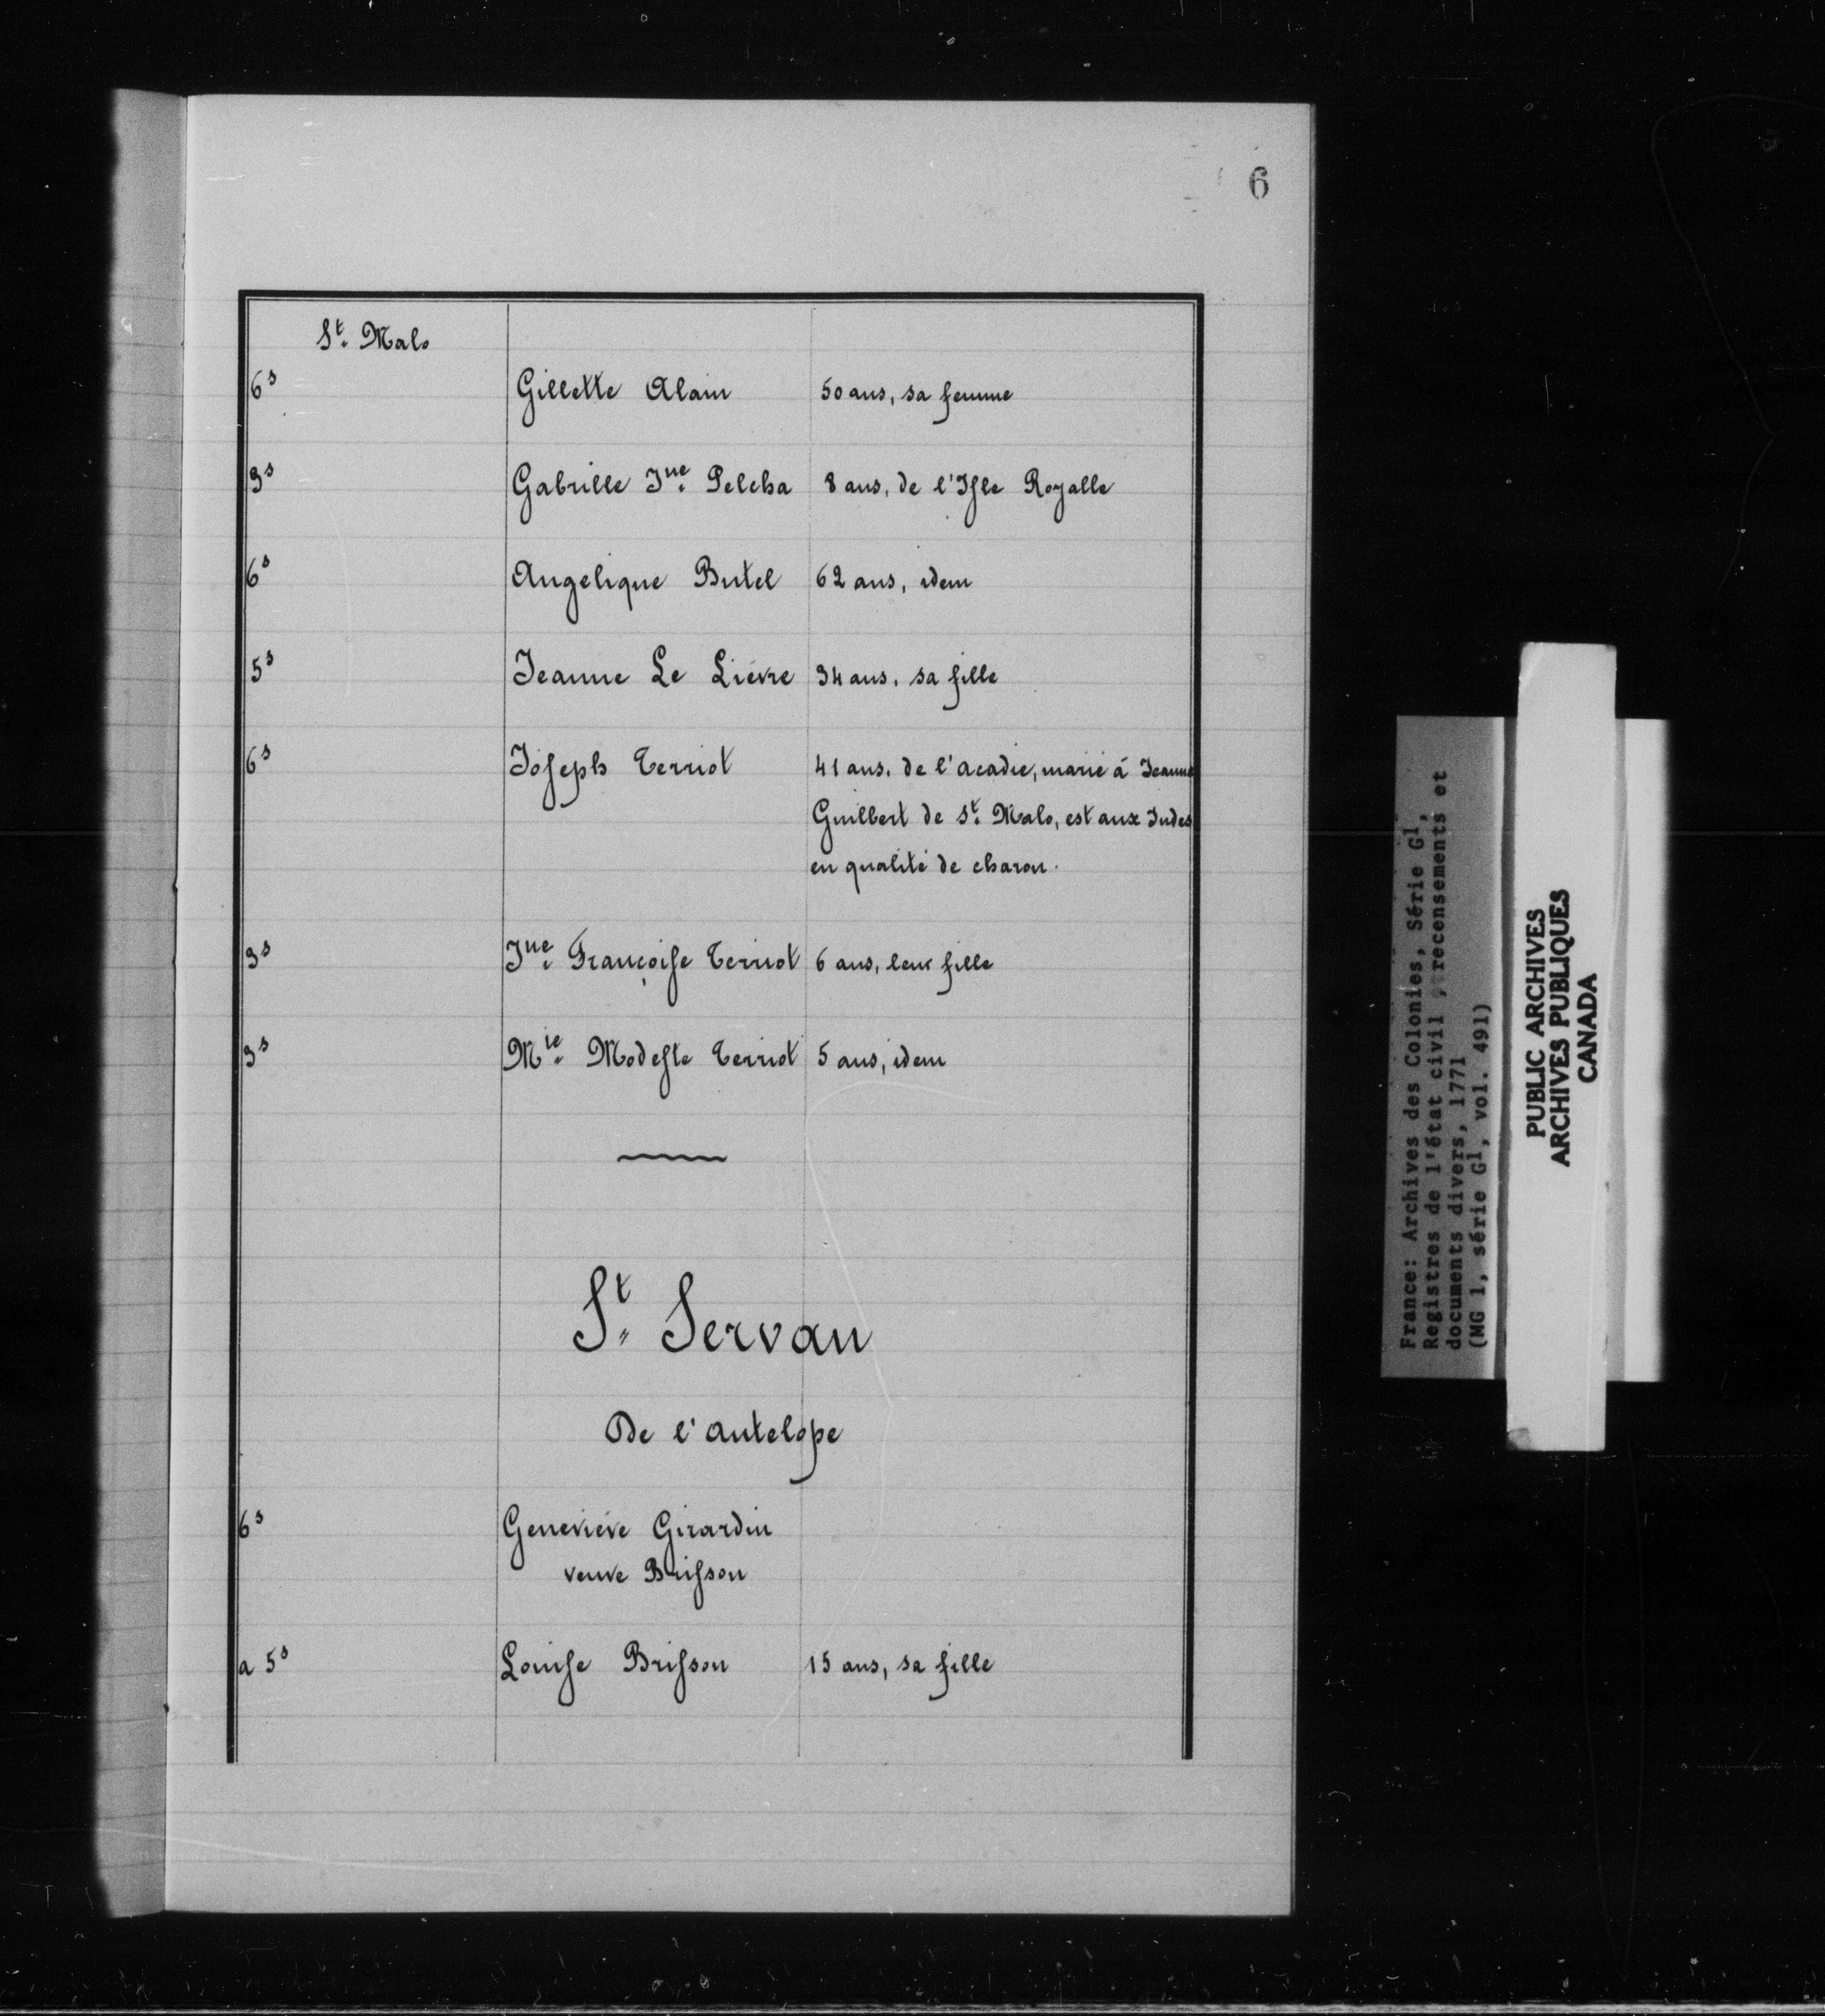 6
St. Malo
6s Gillette Alain 50 ans, sa femme
3s Gabrille Jne. Pelcha 8 ans, de l'Isle Royalle
6s Angelique Butel 62 ans, idem
5s Jeanne Le Liévre 34 ans, sa fille
6s Joseph Terriot 41 ans, de l'acadie, marié á Jeanne
Guilbert de St. Malo, est aux Indes
en qualité de charon.
3s Jne. Françoise Terriot 6 ans, leur fille
3s Mie. Modeste Terriot 5 ans, idem
St. Servan
De l'antelope
6s Geneviéve Girardin
veuve Brisson
a 5s Louise Brisson 15 ans, sa fille
France: Archives des Colonies, Série G1,
Registres de l'état civil, recensements et
documents divers, 1771
(MG 1, série G1, vol. 491)
PUBLIC ARCHIVES
ARCHIVES PUBLIQUES
CANADA